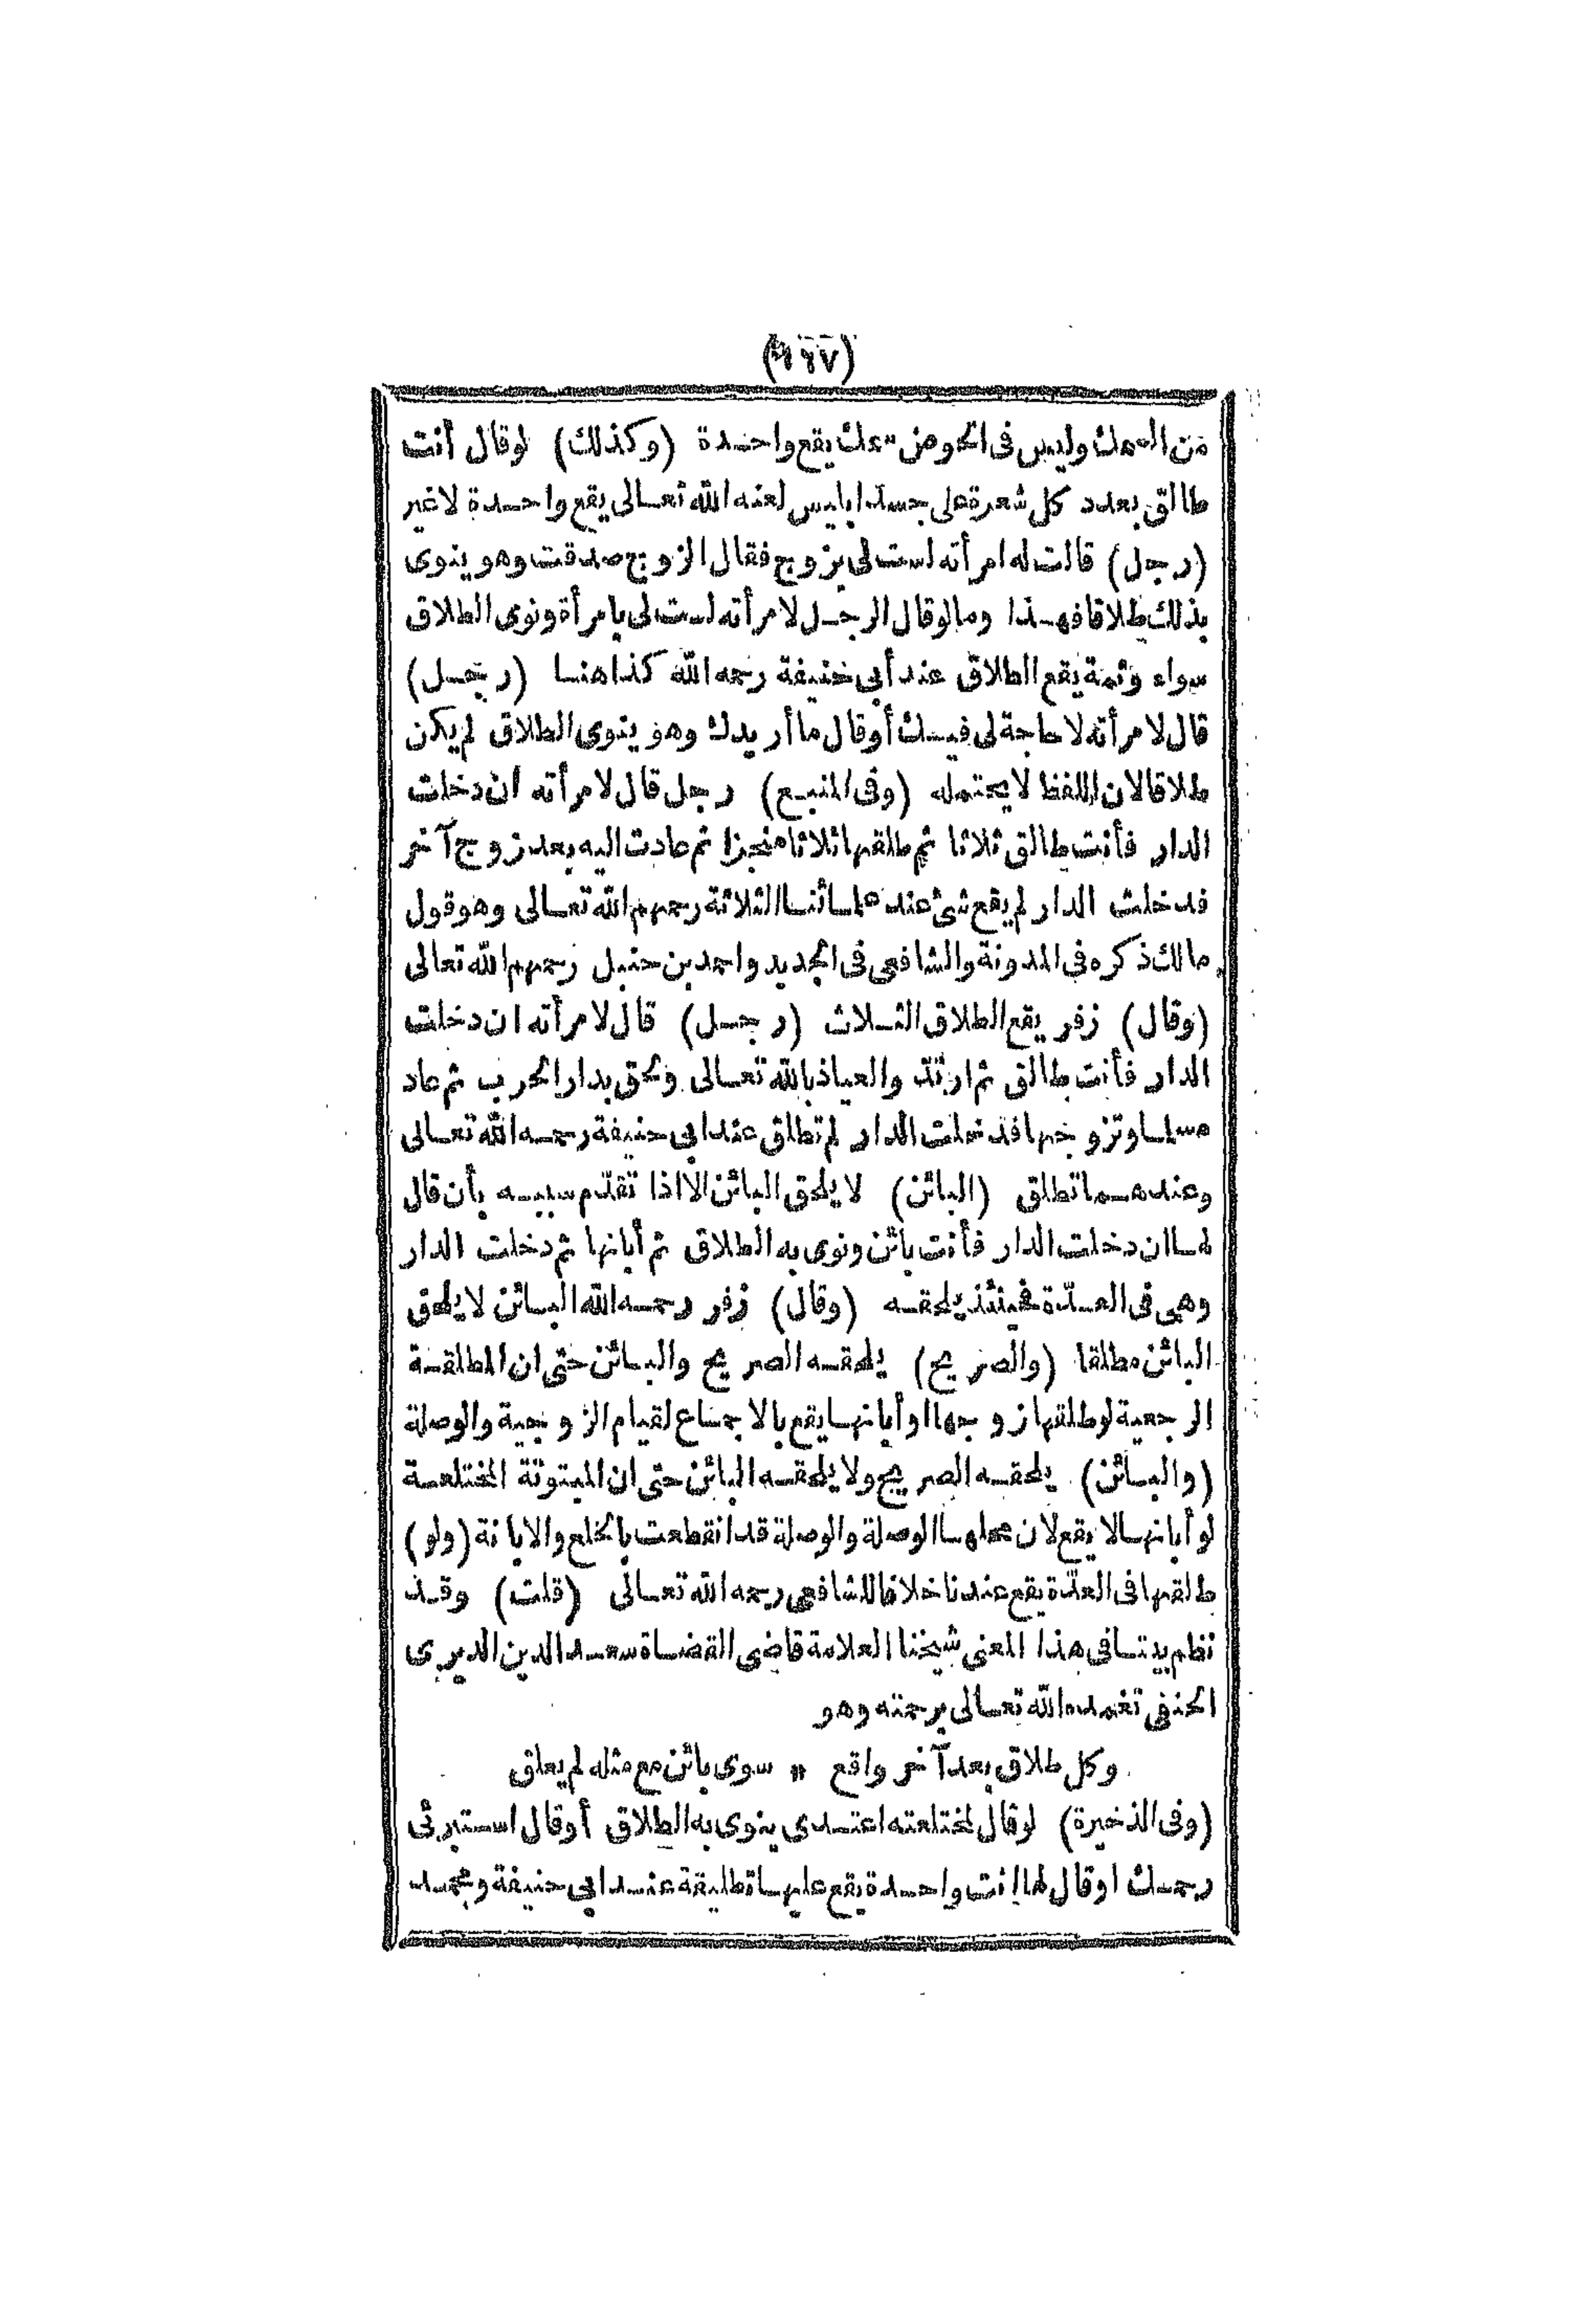 من السمك وليس فى الحوض سمك يقع واحدة (وكذلك) لوقال أنت
طالق بعدد كل شعرة على جسد ابليس لعنه الله تعالى يقع واحدة لاغير
(رجل) قالت له امرأته لست لى بزوج فقال الزوج صدقت وهو ينوى
بذلك طلاقا فهذا ومالوقال الرجل لامرأته لست لى بامرأة ونوى الطلاق
سواء وثمة يقع الطلاق عند أبى حنيفة رحمه الله كذا هنا (رجل)
قال لامرأته لا حاجة لى فيك أوقال ما أريدك وهو ينوى الطلاق لم يكن
طلاقا لان اللفظ لا يحتمله (وفى المنبع) رجل قال لامرأته ان دخلت
الدار فأنت طالق ثلاثا ثم طلقها ثلاثا منجزا ثم عادت اليه بعد زوج آخر
فدخلت الدار لم يقع شئ عند علمائنا الثلاثة رحمهم الله تعالى وهو قول
مالك ذكره فى المدونة والشافعى فى الجديد واحمد بن حنبل رحمهم الله تعالى
(وقال) زفر يقع الطلاق الثلاث (رجل) قال لامرأته ان دخلت
الدار فأنت طالق ثم ارتد والعياذ بالله تعالى ولحق بدار الحرب ثم عاد
مسلما وتزوجها فدخلت الدار لم تطلق عند ابى حنيفة رحمه الله تعالى
وعندهما تطلق (البائن) لا يلحق البائن الا اذا تقدّم سببه بأن قال
لها ان دخلت الدار فأنت بائن ونوى به الطلاق ثم أبانها ثم دخلت الدار
وهى فى العدّة فحينئذ يلحقه (وقال) زفر رحمه الله البائن لا يلحق
البائن مطلقا (والصريح) يلحقه الصريح والبائن حتى ان المطلقة
الرجعية لو طلقها زوجها او أبانها يقع بالاجماع لقيام الزوجية والوصلة
(والبائن) يلحقه الصريح ولا يلحقه البائن حتى ان المبتوتة المختلعة
لو أبانها لا يقع لان محلها الوصلة والوصلة قد انقطعت بالخلع والابانة (ولو)
طلقها فى العدّة يقع عندنا خلافا للشافعى رحمه الله تعالى (قلت) وقد
نظم بيتا فى هذا المعنى شيخنا العلامة قاضى القضاة سعد الدين الديرى
الحنفى تغمده الله تعالى برحمته وهو
وكل طلاق بعد آخر واقع * سوى بائن مع مثله لم يعلق
(وفى الذخيرة) لوقال لمختلعته اعتدى ينوى به الطلاق أوقال استبرئى
رحمك اوقال لها انت واحدة يقع عليها تطليقة عند ابى حنيفة ومحمد